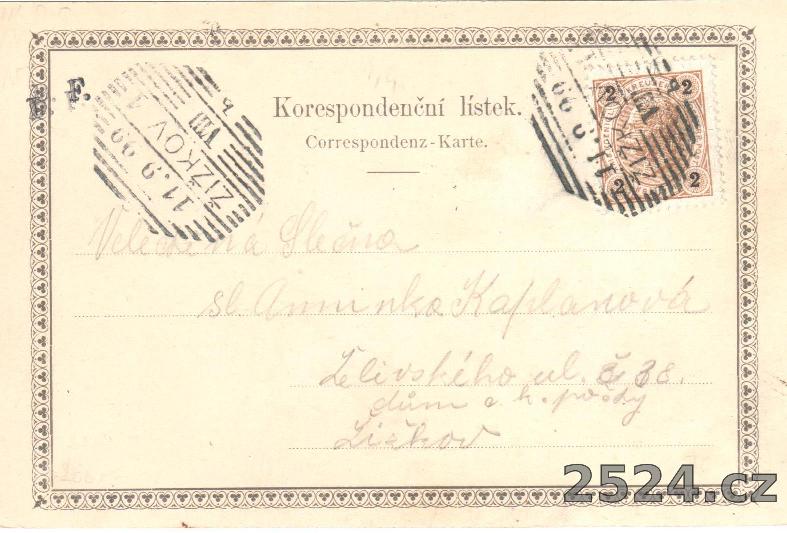 F. F.
ŽIŽKOV 1
11.9.99
VIII
b
Korespondenční lístek.
Correspondenz-Karte.
2 2
2 2
ŽIŽKOV
11.9.99
Velectěná Slečna
sl. Aninka Kaplanová
Želivského ul. č 38.
dům c. k. pošty
Žižkov
2524.cz